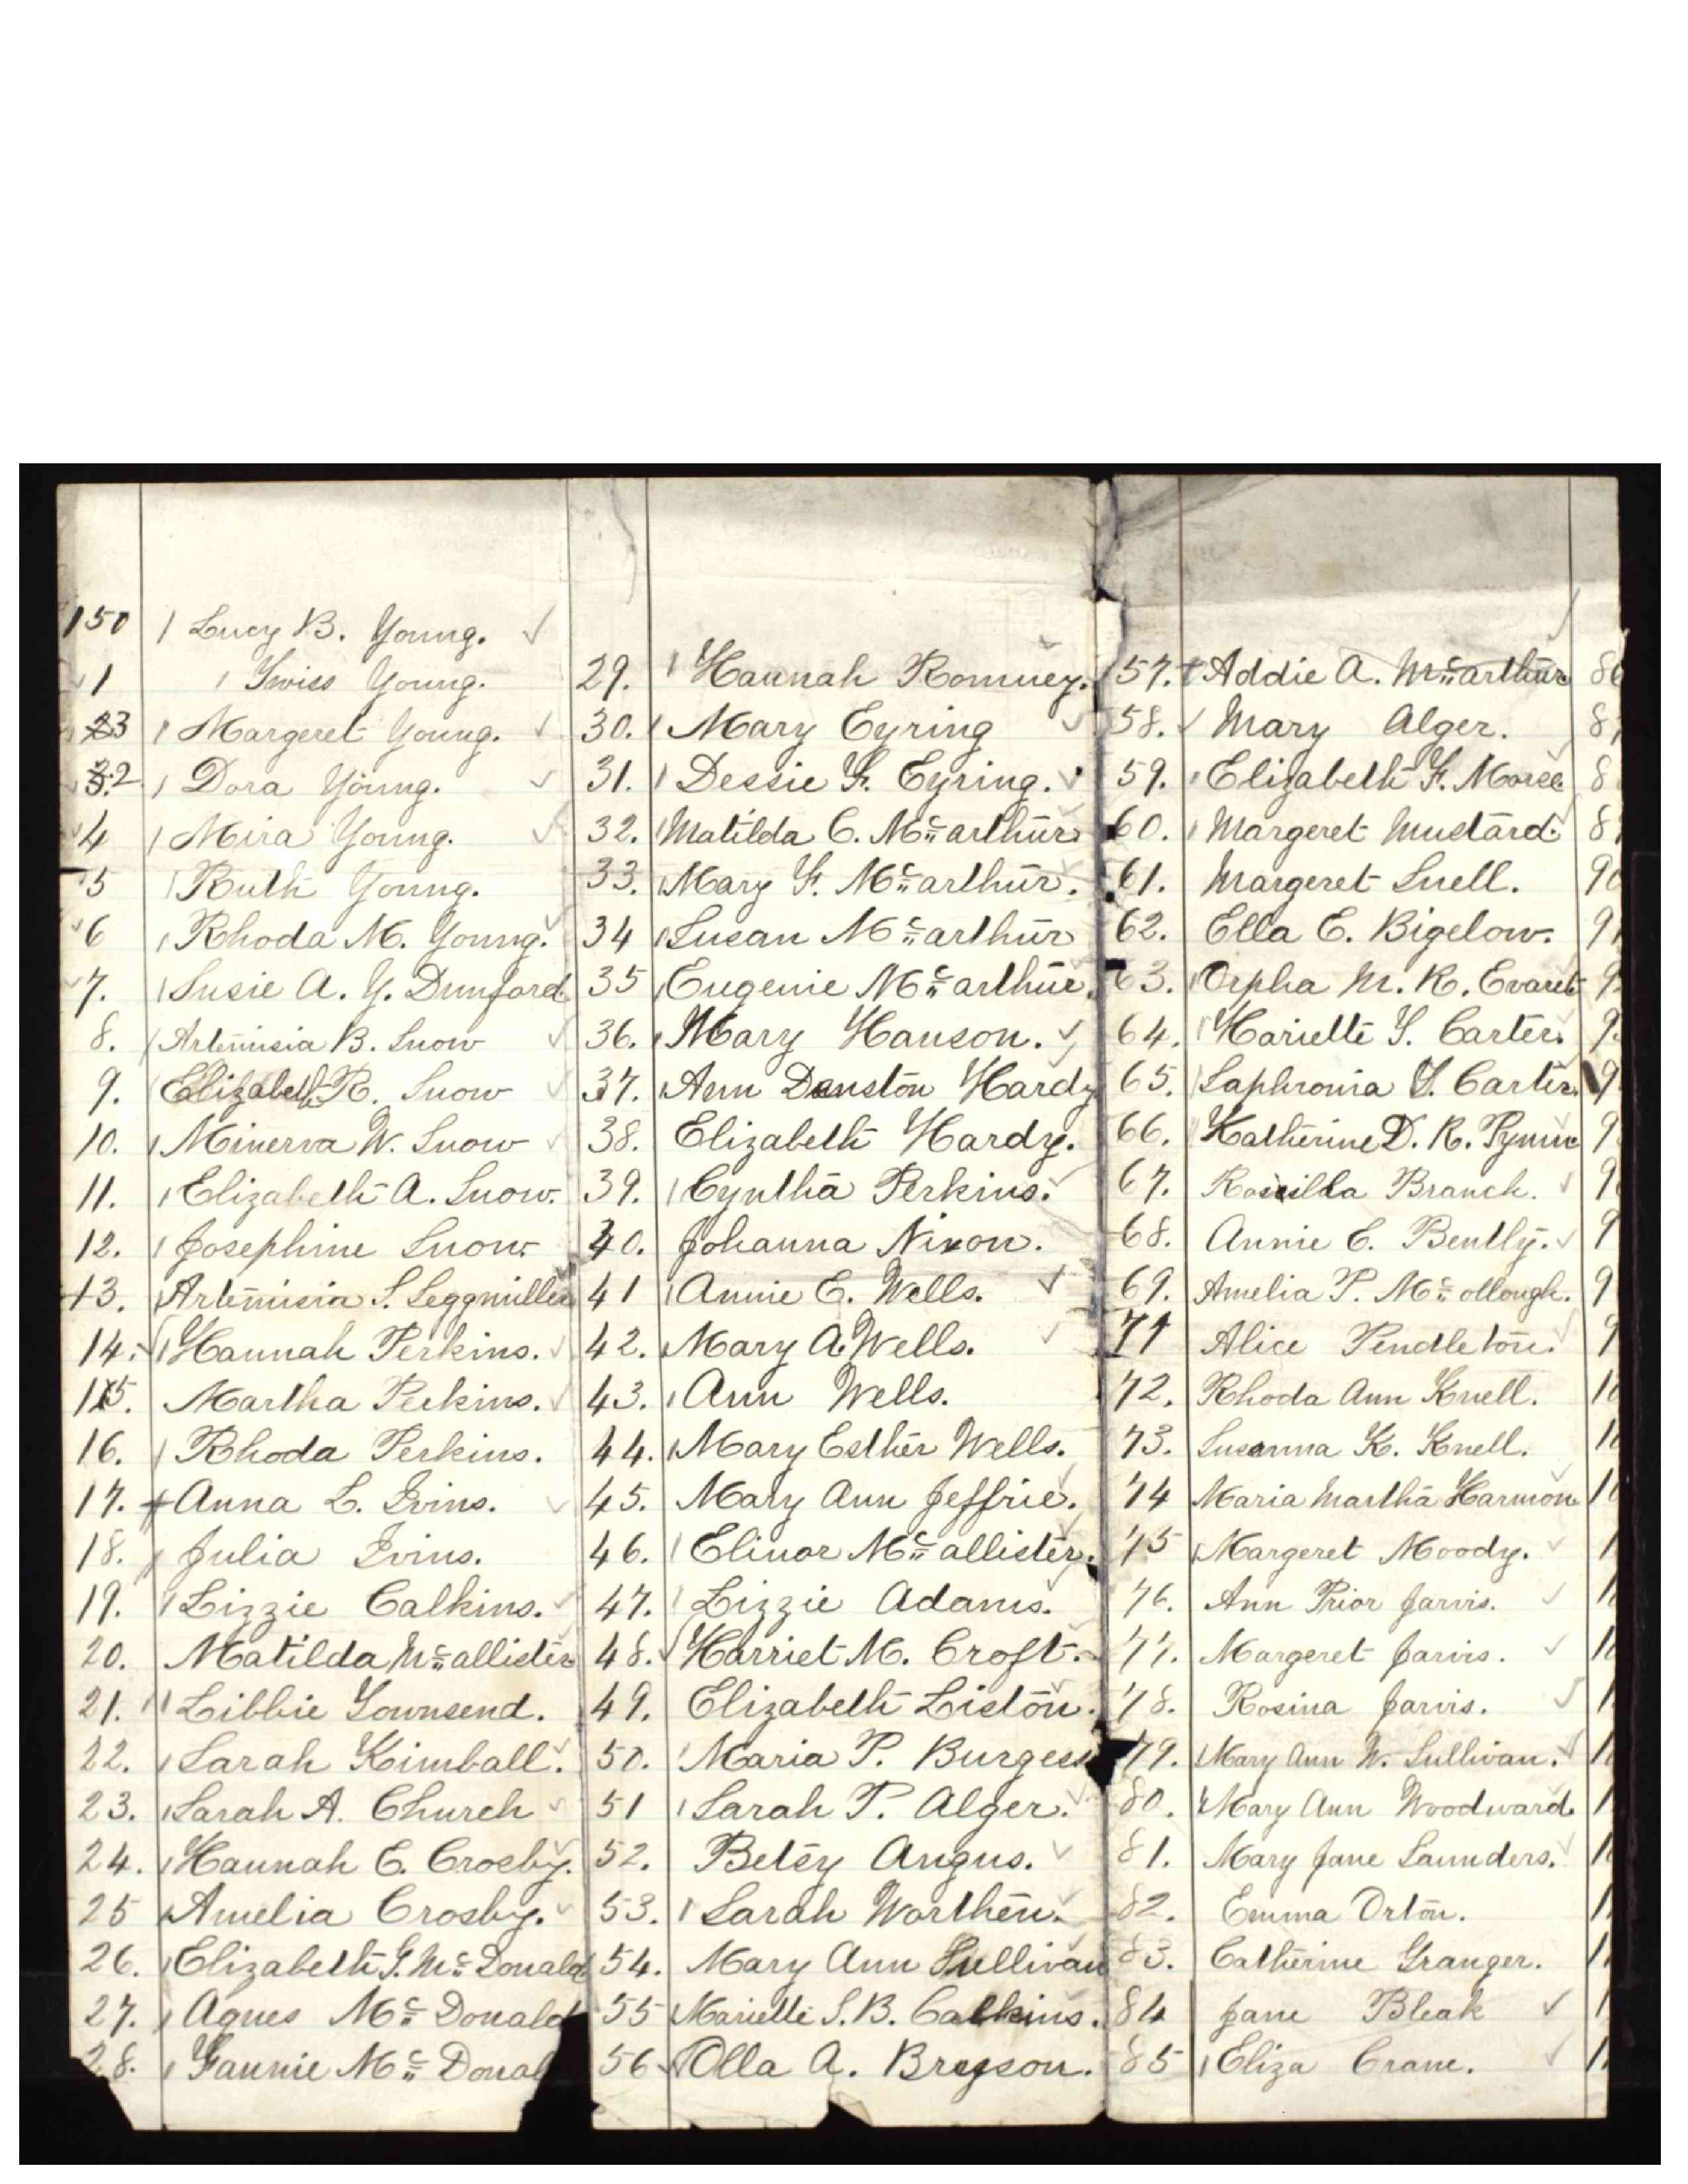 150 Lucy B. Young.
1 Swiss Young.
3 Margeret Young.
2 Dora Young.
4 Mira Young.
5 Ruth Young.
6 Rhoda M. Young.
7. Susie A. Y. Dunford.
8. Artemisia B. Snow
9. Elizabeth R. Snow
10. Minerva W. Snow
11. Elizabeth A. Snow.
12. Josephine Snow.
13. Artemisia S. Seggmiller
14. Hannah Perkins.
15. Martha Perkins.
16. Rhoda Perkins.
17. Anna L. Ivins.
18. Julia Ivins.
19. Lizzie Calkins.
20. Matilda Mc allister
21. Libbie Townsend.
22. Sarah Kimball.
23. Sarah A. Church
24. Hannah E. Crosby.
25 Amelia Crosby.
26. Elizabeth G. Mc Donald
27. Agnes Mc Donald
28. Fannie Mc Donal
29. Hannah Romney.
30. Mary Eyring
31. Dessie F. Eyring.
32. Matilda C. Mc arthur
33. Mary F. Mc arthur.
34 Susan Mc arthur
35 Eugenie Mc arthur.
36. Mary Hanson.
37. Ann Denston Hardy
38. Elizabeth Hardy.
39. Cyntha Perkins.
40. Johanna Nixon.
41 Annie E. Wells.
42. Mary A. Wells.
43. Ann Wells.
44. Mary Esther Wells.
45. Mary Ann Jeffrie.
46. Elinor Mc allister.
47. Lizzie Adams.
48. Harriet M. Croft.
49. Elizabeth Liston.
50. Maria P. Burgess
51 Sarah P. Alger.
52. Betsy Angus.
53. Sarah Worthen.
54. Mary Ann Sullivan
55 Mariette S. B. Calkins.
56 Olla A. Bryson.
57. Addie A. Mc arthur
58. Mary Alger.
59. Elizabeth F. Morse.
60. Margeret Mustard.
61. Margeret Snell.
62. Ella E. Bigelow.
63. Orpha M. R. Evaret
64. Hariette S. Carter.
65. Saphronia Y. Carter.
66. Katherine D. R. Pymm
67. Rosilla Branch.
68. Annie E. Bently.
69. Amelia P. Mc ollough.
71 Alice Pendleton.
72. Rhoda Ann Knell.
73. Susanna K. Knell.
74 Maria Martha Harmon
75 Margeret Moody.
76. Ann Prior Jarvis.
77. Margeret Jarvis.
78. Rosina Jarvis.
79. Mary Ann W. Sullivan.
80. Mary Ann Woodward.
81. Mary Jane Saunders.
82. Emma Orton.
83. Catherine Granger.
84 Jane Bleak
85 Eliza Crane.